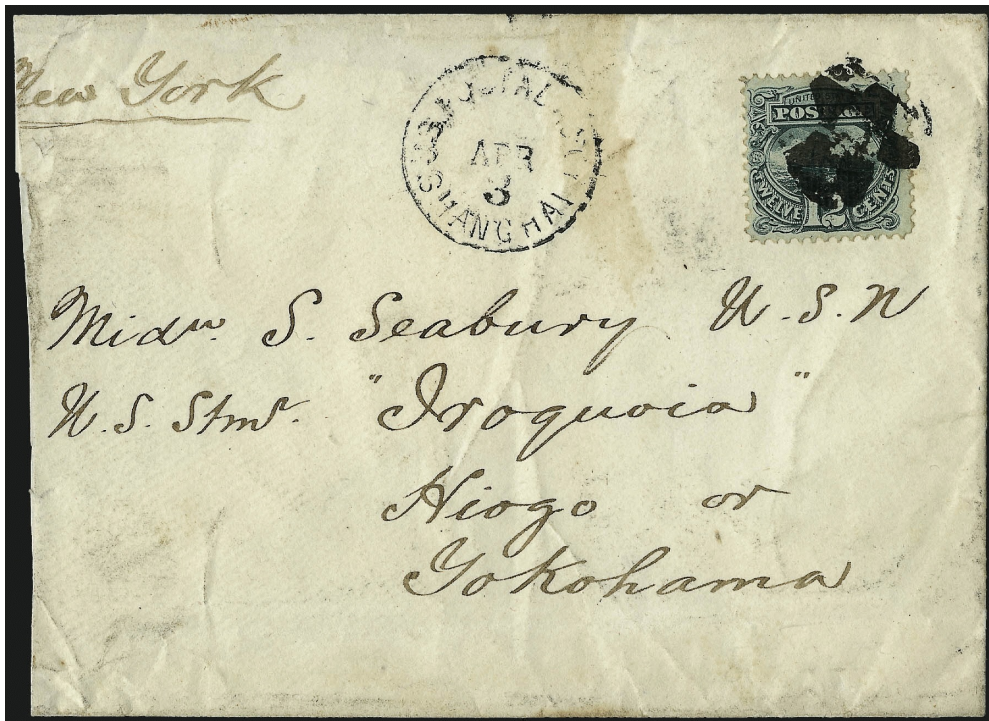 New York
U.S. POSTAL AG'CY
APR
3
SHANGHAI
UNITED
POSTAGE
TWELVE 12 CENTS
Midn. S. Seabury U.S.N
U.S. Stmr. "Iroquois"
Hiogo or
Yokohama